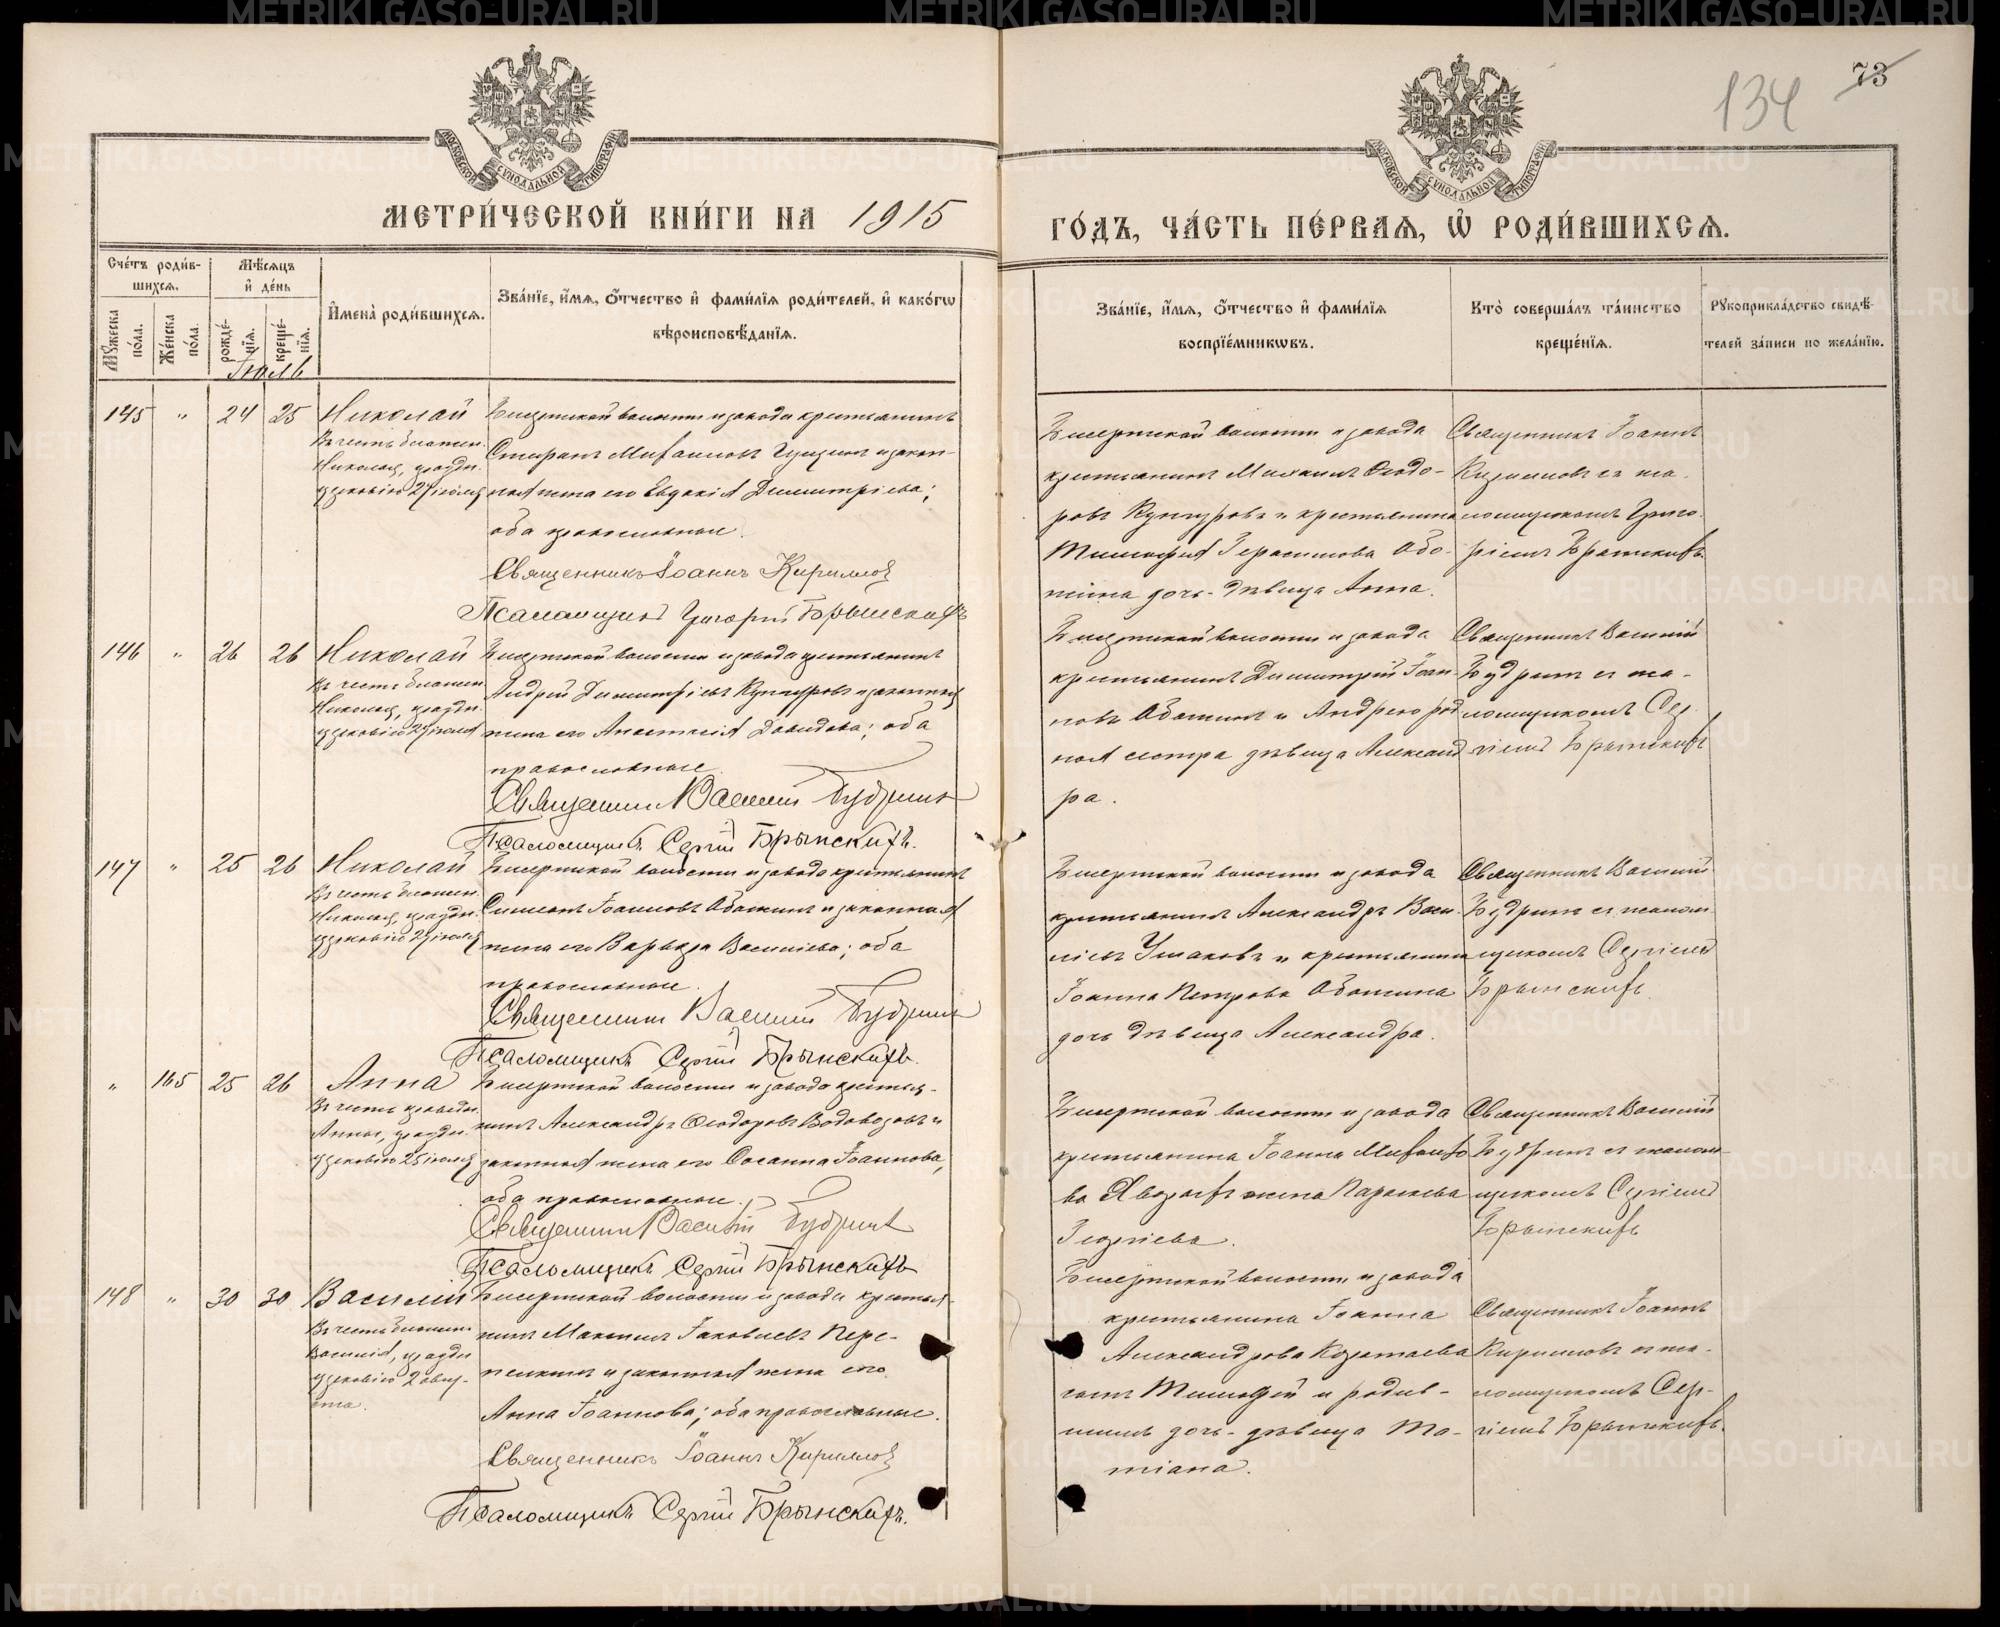 134
73
МОСКОВСКОЙ СѴНОДАЛЬНОЙ ТИПОГРАФІИ
МОСКОВСКОЙ СѴНОДАЛЬНОЙ ТИПОГРАФІИ
МЕТРИ́ЧЕСКОЙ КНИ́ГИ НА 1915
ГО́ДЪ, ЧА́СТЬ ПЕ́РВАѦ, Ѽ РОДИ́ВШИХСѦ.
Сче́тъ роди́в-
шихсѧ.
Мѣ́сѧцъ
и҆ де́нь
Мꙋ́жеска по́ла.
Же́нска по́ла.
рожде́-нїѧ.
креще́-нїѧ.
Іюль
И҆мена̀ роди́вшихсѧ.
Зва́нїе, и҆́мѧ, ѻ҆́тчество и҆ фами́лїѧ роди́телей, и҆ како́гѡ
вѣроисповѣ́данїѧ.
Зва́нїе, и҆́мѧ, ѻ҆́тчество и҆ фами́лїѧ
воспрїе́мникѡвъ.
Кто̀ соверша́лъ та́инство
креще́нїѧ.
Рꙋкоприкла́дство свидѣ́-
телей за́писи по жела́нїю.
145 " 24 25 Николай
Въ честь блажен.
Николая, праздн.
церковію 27 іюля
Бисертской волости и завода крестьянинъ
Стефанъ Михаиловъ и закон-
ная жена его Евдокія Димитріева;
оба православные.
Священникъ Іоаннъ Кириллов
Псаломщикъ Григорій Брынскихъ
Бисертской волости и завода
крестьянинъ Михаилъ Ѳеодо-
ровъ Кунгуровъ и крестьянина
Тимоѳея Герасимова Або-
тина дочь-дѣвица Анна.
Священникъ Іоаннъ
Кирилловъ съ пса-
ломщикомъ Григо-
ріемъ Брынскихъ
146 " 26 26 Николай
Въ честь блажен.
Николая, праздн.
церковію 27 іюля
Бисертской волости и завода крестьянинъ
Андрей Димитріевъ Кунгуровъ и законная
жена его Анастасія Давидова; оба
православные
Священникъ Василій Будринъ
Псаломщикъ Сергій Брынскихъ.
Бисертской волости и завода
крестьянинъ Димитрій Іоан-
новъ Аботинъ и Андрею род
ная сестра дѣвица Александ
ра.
Священникъ Василій
Будринъ съ пса-
ломщикомъ Сер-
гіемъ Брынскихъ
147 " 25 26 Николай
Въ честь блажен.
Николая, праздн.
церковію 27 іюля
Бисертской волости и завода крестьянинъ
Симеонъ Іоанновъ Аботинъ и законная
жена его Варвара Васильева; оба
православные.
Священникъ Василій Будринъ
Псаломщикъ Сергій Брынскихъ.
Бисертской волости и завода
крестьянинъ Александръ Васи-
ліевъ Ушаковъ и крестьянина
Іоанна Петрова Аботина
дочь дѣвица Александра.
Священникъ Василій
Будринъ съ псалом-
щикомъ Сергіемъ
Брынскихъ.
" 165 25 26 Анна
Въ честь праведн.
Анны, праздн.
церковію 25 іюля
Бисертской волости и завода крестья-
нинъ Александръ Ѳеодоровъ Водовозовъ и
законная жена его Сосанна Іоаннова,
оба православные.
Священникъ Василій Будринъ
Псаломщикъ Сергій Брынскихъ
Бисертской волости и завода
крестьянина Іоанна Михаило
ва жена Параскева
Георгіева.
Священникъ Василій
Будринъ съ псалом-
щикомъ Сергіемъ
Брынскихъ
148 " 30 30 Василій
Въ честь блажен.
Василія, праздн
церковію 2 авгу-
ста.
Бисертской волости и завода крестья-
нинъ Максимъ Іаковлевъ Пере-
пелкинъ и законная жена его
Анна Іоаннова; оба православные.
Священникъ Іоаннъ Кириллов
Псаломщикъ Сергій Брынскихъ.
Бисертской волости и завода
крестьянина Іоанна
Александрова
сынъ Тимоѳей и родив-
шимъ дочь-дѣвица Та-
тіана.
Священникъ Іоаннъ
Кирилловъ съ пса-
ломщикомъ Сер-
гіемъ Брынскихъ.
METRIKI.GASO-URAL.RU